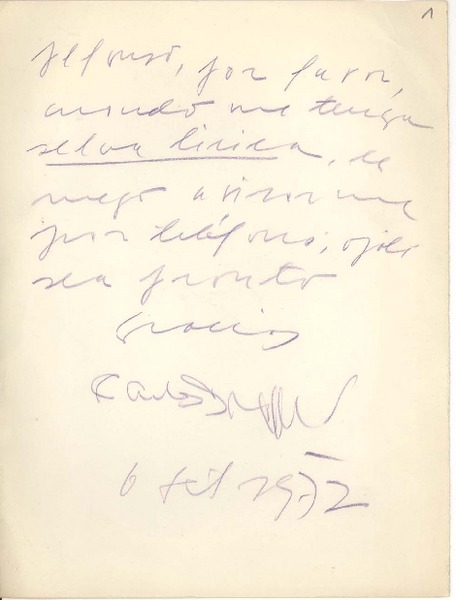 1
Alfonso, por favor,
cuando me tenga
selva lírica, le
ruego avisarme
por teléfono, ojalá
sea pronto
gracias
Carlos
6 set 1972